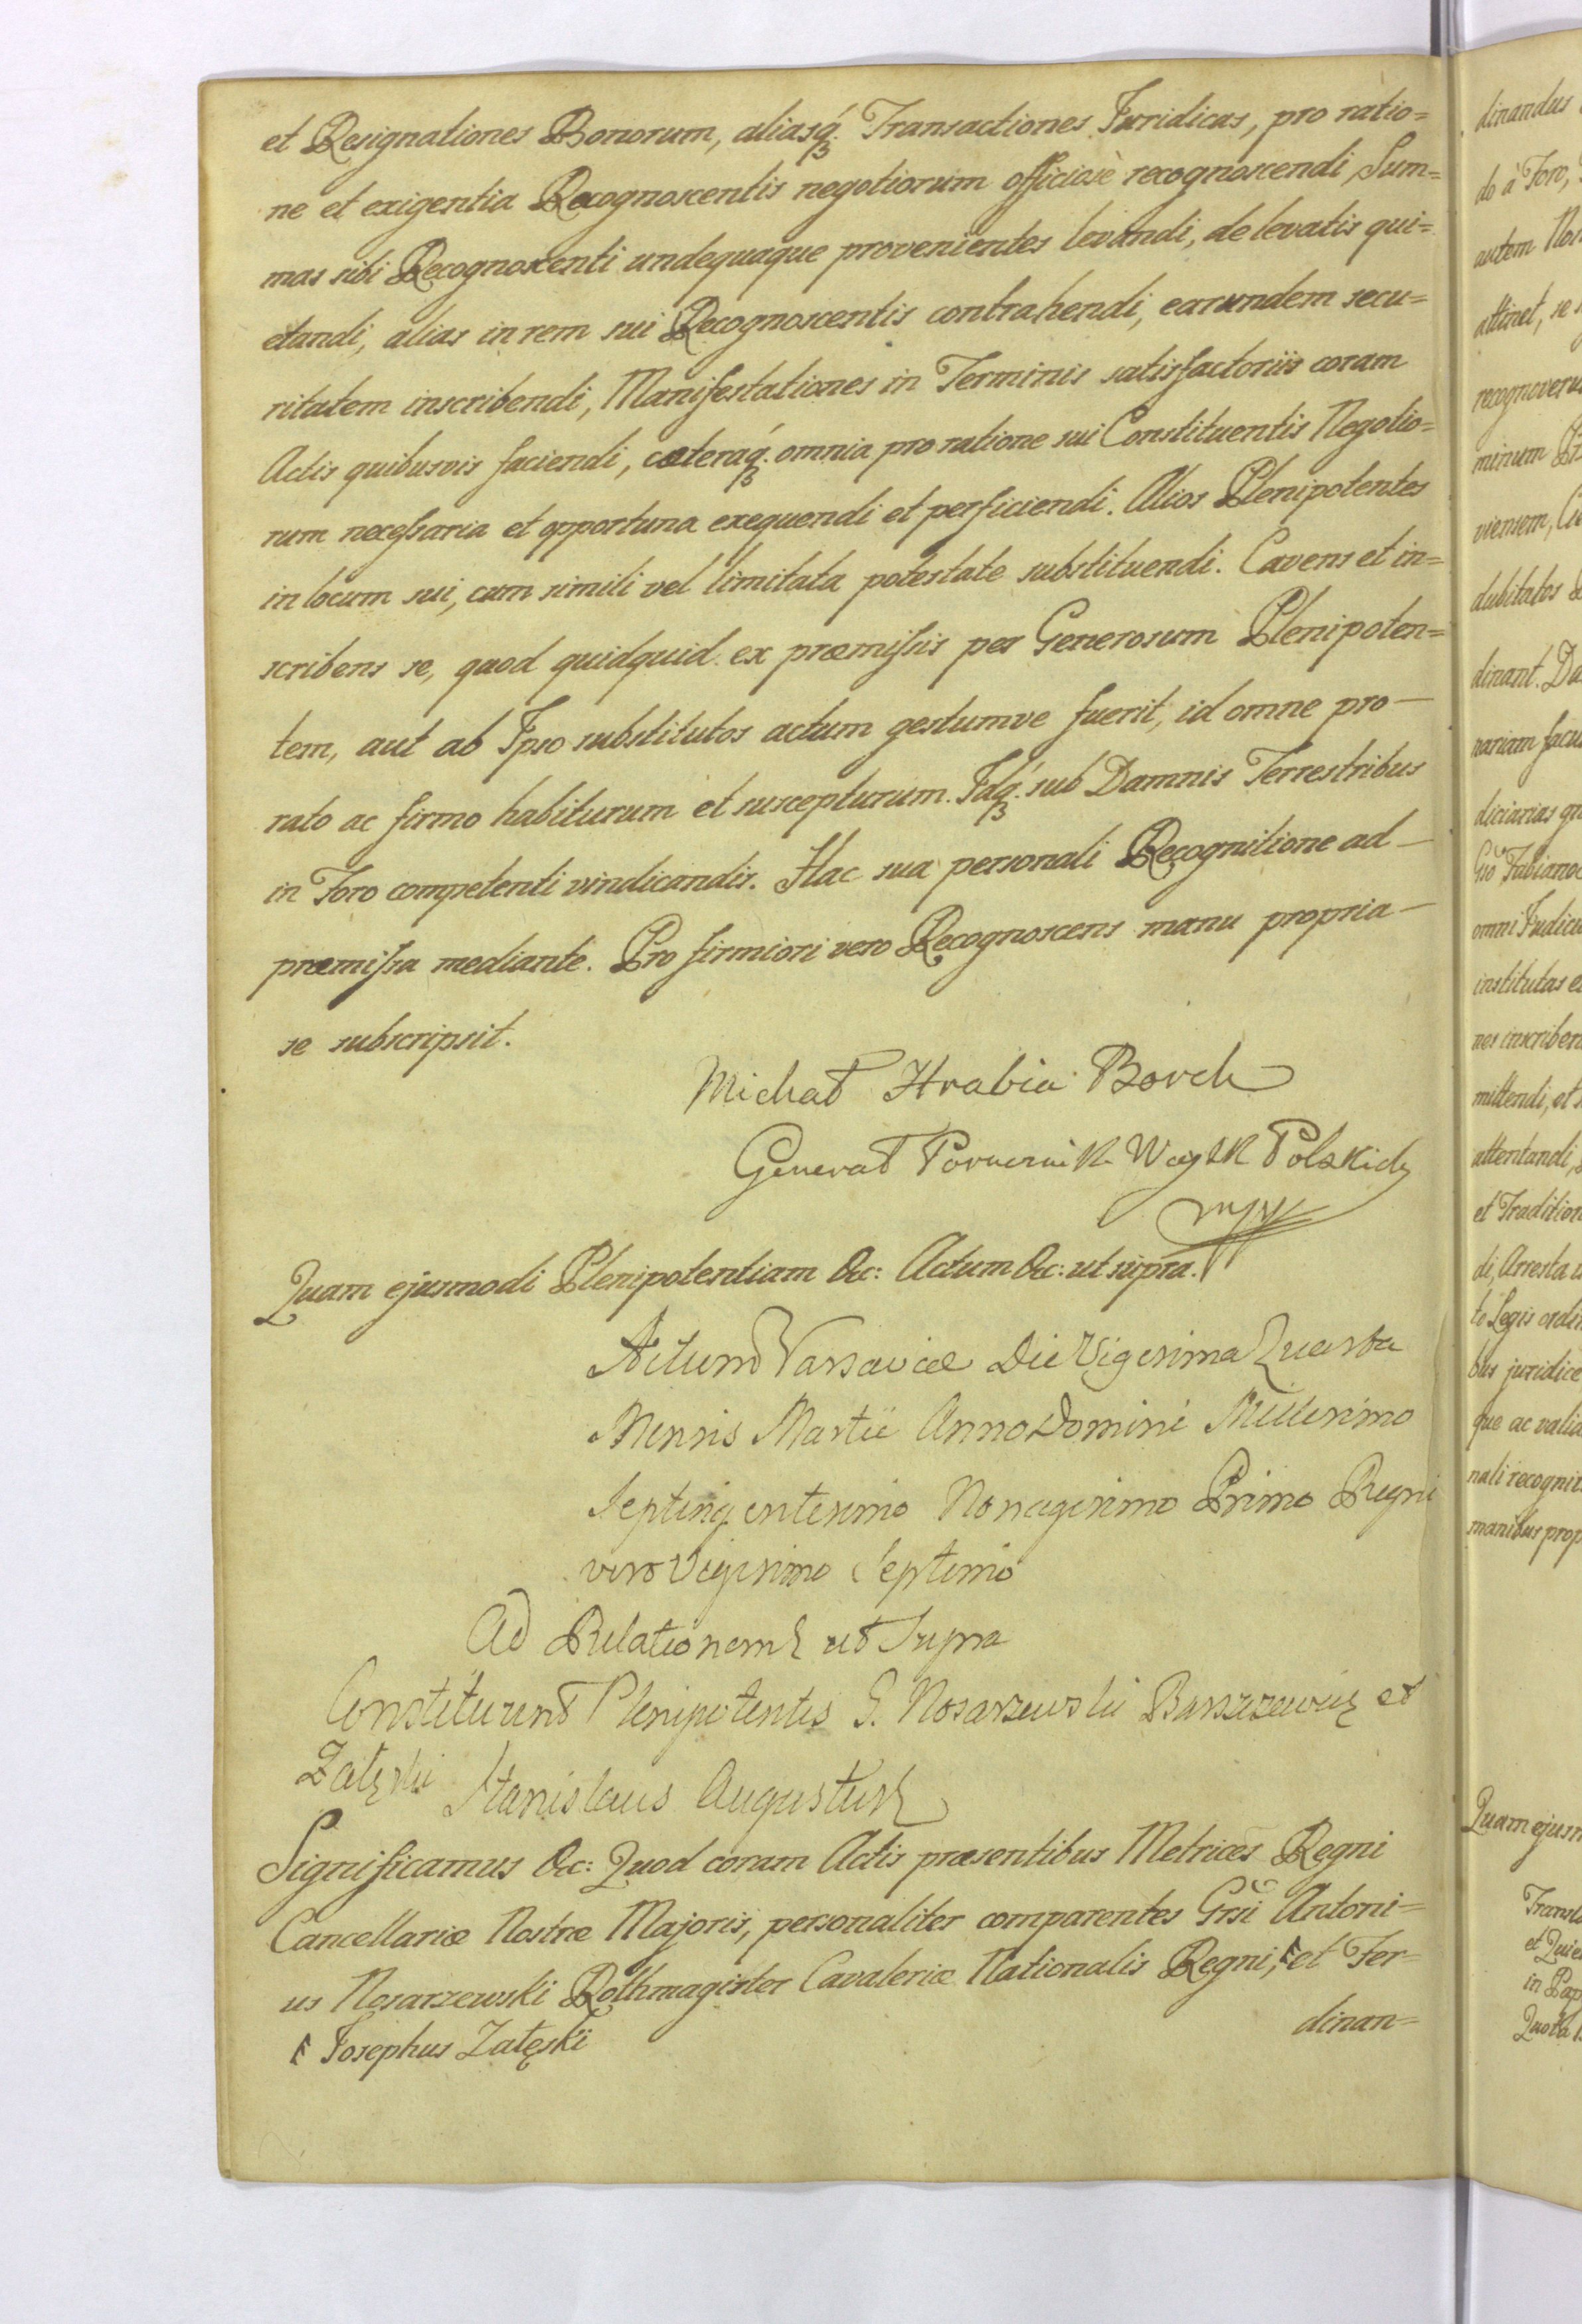 et Resignationes Bonorum, aliasq́ꝫ. Transactiones Juridicas, pro ratio=
ne et exigentia Recognoscentis negotiorum officiosè recognoscendi, Sum=
mas sibi Recognoscenti undequaque provenientes levandi, de levatis qui=
etandi, alias in rem sui Recognoscentis contrahendi, earundem secu=
ritatem inscribendi, Manifestationes in Terminis satisfactoriis coram
Actis quibusvis faciendi, cæteraq́ꝫ. omnia pro ratione sui Constituentis Negotio=
rum necessaria et opportuna exequendi et perficiendi. Alios Plenipotentes
in locum sui, cum simili vel limitata potestate substituendi. Cavens et in=
scribens se, quod quidquid ex præmissis per Generosum Plenipoten=
tem, aut ab Ipso substitutos actum gestumve fuerit, id omne pro—
rato ac firmo habiturum et suscepturum. Idq́ꝫ. sub Damnis Terrestribus
in Foro competenti vindicandis. Hac sua personali Recognitione ad—
præmissa mediante. Pro firmiori vero Recognoscens manu propria—
se subscripsit.
Michał Hrabia Borch
Generał Porucznik Woysk Polskich
mpp
Quam ejusmodi Plenipotentiam &c: Actum &c: ut supra.
Actum Varsaviæ Die Vigesima Quarta
Mensis Martii Anno Domini Millesimo
Septingentesimo Nonagesimo Primo Regni
vero Vigesimo Septimo
Ad Relationem ut Supra
Constituunt Plenipotentes G. Nosarzewski Barszczewicz et
Załęski Stanislaus Augustus
Significamus &c: Quod coram Actis præsentibus Metrices Regni
Cancellariæ Nostræ Majoris, personaliter comparentes Grsi Antoni=
us Nosarzewski Rothmagister Cavaleriæ Nationalis Regni, et Fer=
Josephus Załęski
dinan=
dinandus
do à Foro,
autem
attinet, se
recognoverunt
minum
viensem,
dubitatos
dinant.
nariam
diciarias
Fabiano
omni
institutas
nes
mittendi, et
attentandi,
et
di, Arresta
te Legis
bus juridice
que ac
nali
manibus
Quam
et
in
Quota